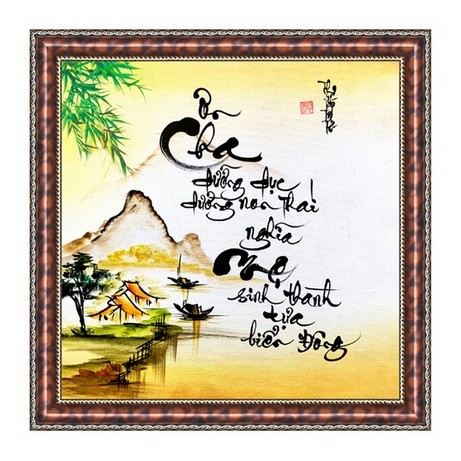 Ơn
Cha
dưỡng dục
dường non Thái
nghĩa
Mẹ
sinh thành
tựa
biển Đông